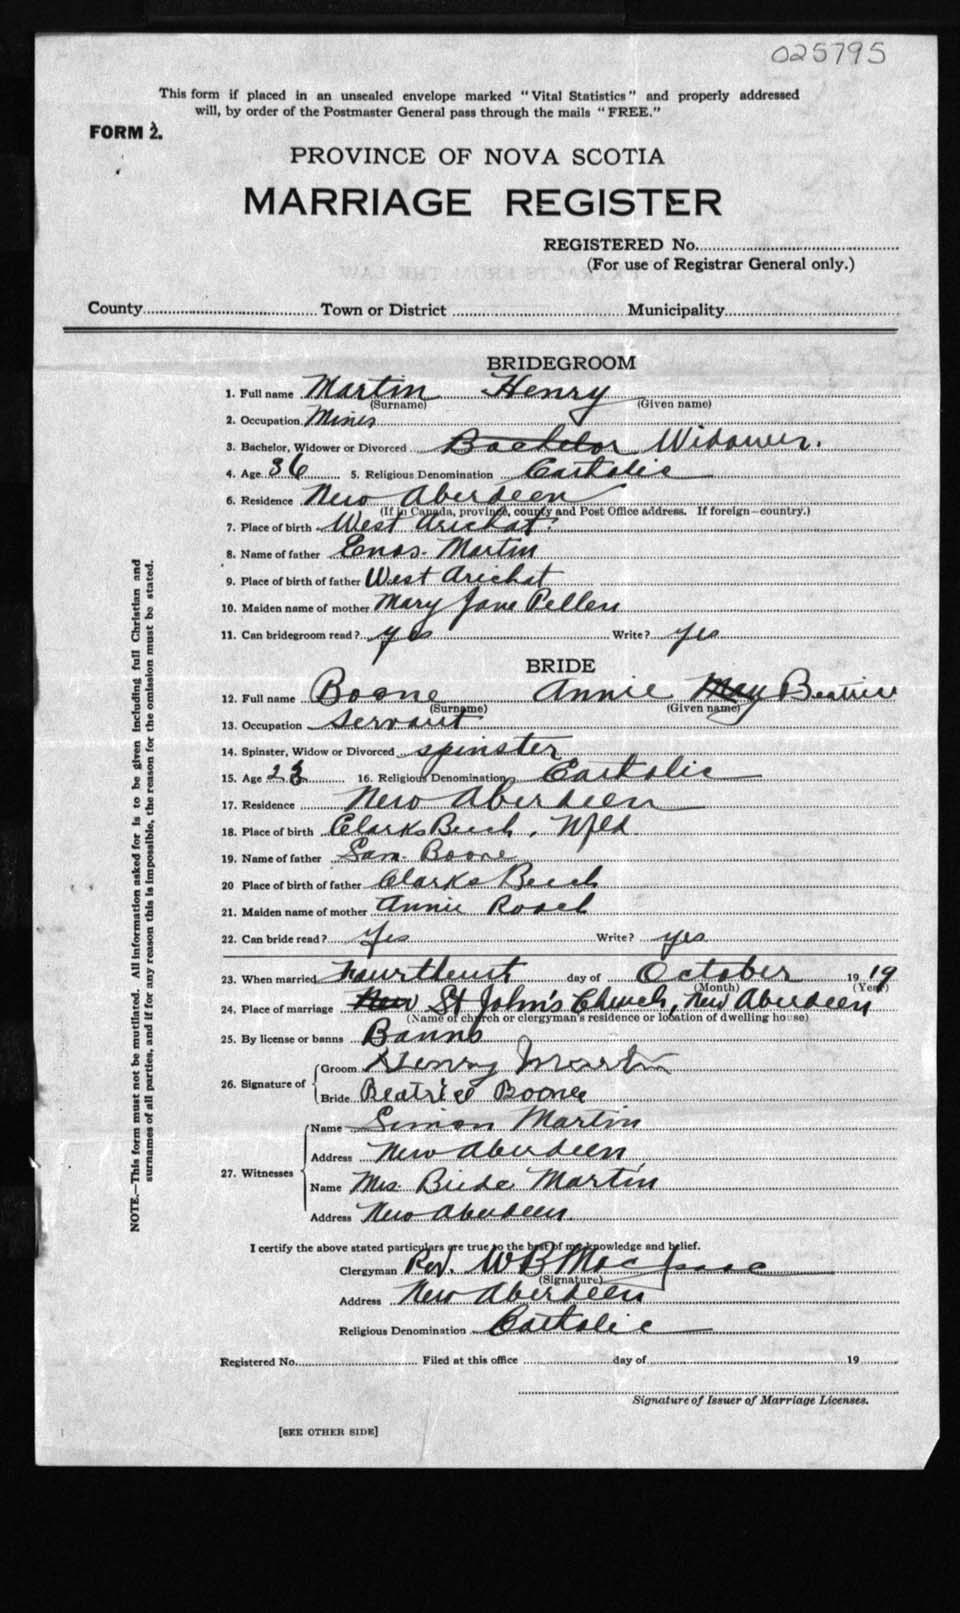 025795
This form if placed in an unsealed envelope marked "Vital Statistics" and properly addressed
will, by order of the Postmaster General pass through the mails "FREE."
FORM 2.
PROVINCE OF NOVA SCOTIA
MARRIAGE REGISTER
REGISTERED No.
(For use of Registrar General only.)
County Town or District Municipality
BRIDEGROOM
1. Full name Martin Henry
(Surname) (Given name)
2. Occupation Miner
3. Bachelor, Widower or Divorced Bachelor Widower.
4. Age 36 5. Religious Denomination Catholic
6. Residence New Aberdeen
(If in Canada, province, county and Post Office address. If foreign—country.)
7. Place of birth West Arichat
8. Name of father Enos Martin
9. Place of birth of father West Arichat
10. Maiden name of mother Mary Jane
11. Can bridegroom read? yes Write? yes
BRIDE
12. Full name Boone Annie May Beatrice
(Surname) (Given name)
13. Occupation servant
14. Spinster, Widow or Divorced spinster
15. Age 16. Religious Denomination Catholic
17. Residence New Aberdeen
18. Place of birth Clarks Beech, Nfld.
19. Name of father Sam. Boone
20 Place of birth of father Clarks Beech
21. Maiden name of mother Annie Roach
22. Can bride read? yes Write? yes
23. When married day of October 1919
(Month) (Year)
24. Place of marriage New St John's Church, New Aberdeen
(Name of church or clergyman's residence or location of dwelling house)
25. By license or banns Banns
26. Signature of Groom Henry Martin
Bride Beatrice Boone
27. Witnesses Name Simon Martin
Address New Aberdeen
Name Mrs. Martin
Address New Aberdeen
I certify the above stated particulars are true to the best of my knowledge and belief.
Clergyman Rev. W B MacIsaac
(Signature)
Address New Aberdeen
Religious Denomination Catholic
Registered No. Filed at this office day of 19
Signature of Issuer of Marriage Licenses.
[SEE OTHER SIDE]
NOTE.—This form must not be mutilated. All information asked for is to be given including full Christian and
surnames of all parties, and if for any reason this is impossible, the reason for the omission must be stated.